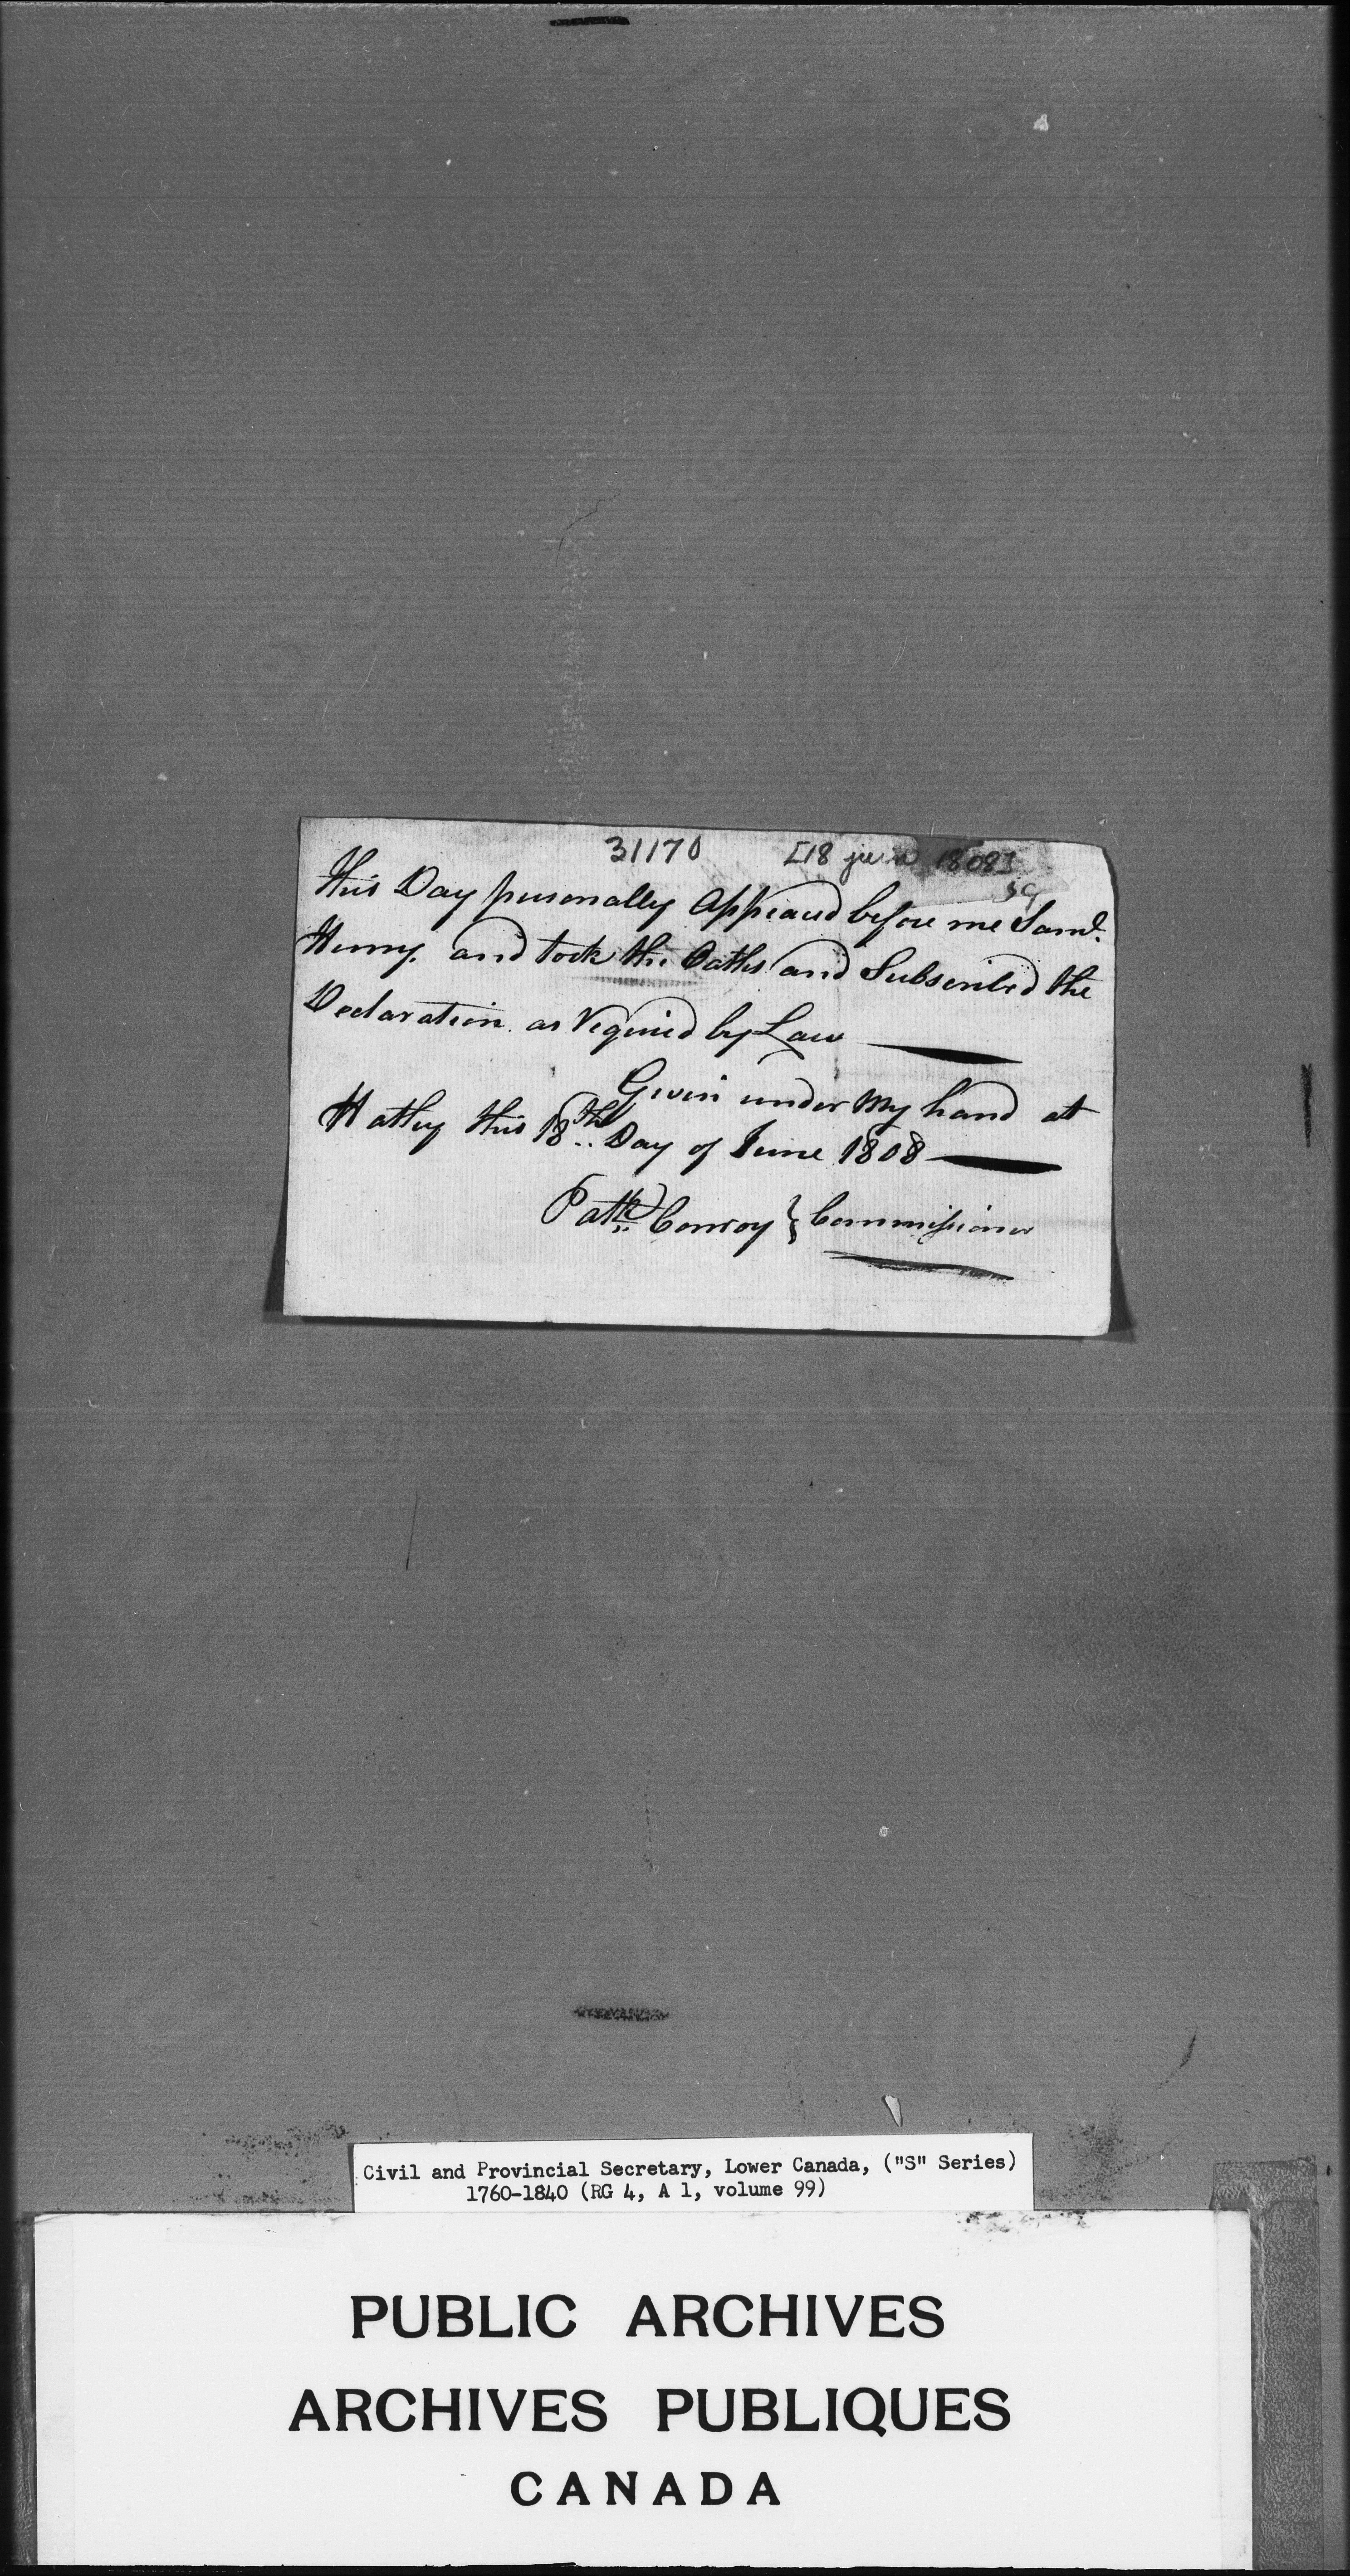 31170 [18 juin 1808]
This Day personally Appeared before me Saml.
Henry. and took the Oaths and Subscribed the
Declaration. as Required by Law
Given under My hand at
Hatley this 18th.. Day of June 1808
Patk. Conroy } Commissioner
Civil and Provincial Secretary, Lower Canada, ("S" Series)
1760-1840 (RG 4, A 1, volume 99)
PUBLIC ARCHIVES
ARCHIVES PUBLIQUES
CANADA